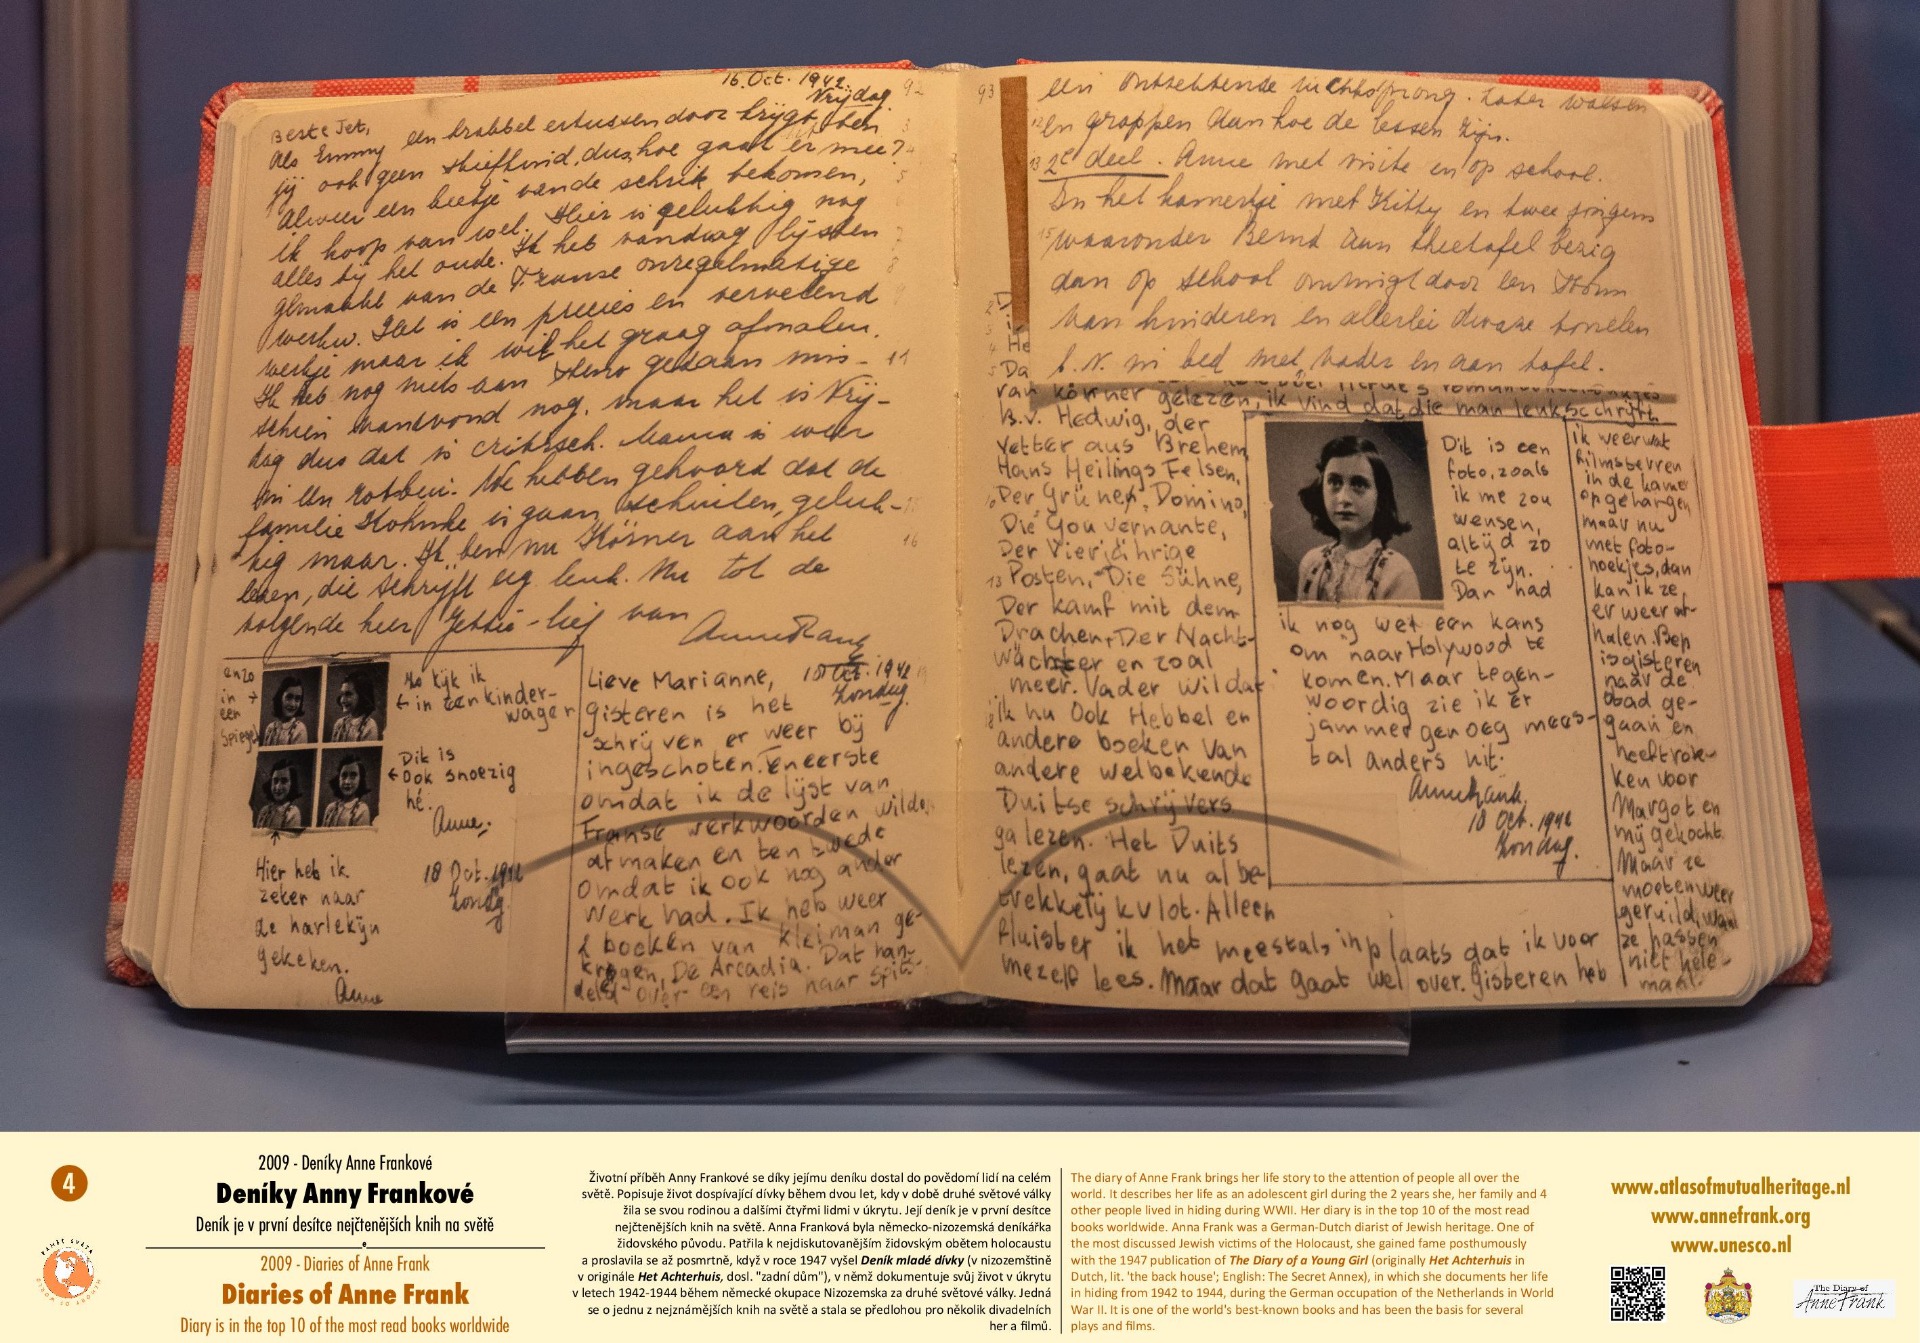 16 Oct. 1942.
Vrijdag.
92
Beste Jet,
Als Emmy een krabbel ertussendoor krijgt, ben
jij ook geen stiefkind, dus, hoe gaat er mee?
Alweer een beetje van de schrik bekomen,
ik hoop van wel. Hier is gelukkig nog
alles bij het oude. Ik heb vandaag lijsten
gemaakt van de Franse onregelmatige
werkw. Het is een precies en vervelend
werkje maar ik wil het graag afmaken.
Ik heb nog niets aan steno gedaan mis-
schien vanavond nog, maar het is Vrij-
dag dus dat is critisch. Mama is weer
We hebben gehoord dat de
familie
is gaan schuilen, geluk-
kig maar. Ik ben nu Körner aan het
lezen, die schrijft erg leuk. Nu tot de
volgende keer Jettie-lief van
Anne Frank
enzo
in →
een
spiegel
Zo kijk ik
← in een kinder-
wagen
Dit is
← Ook snoezig
hé.
Anne.
Hier heb ik
zeker naar
de harlekijn
gekeken.
Anne
18 Oct. 1942
Zondag
Lieve Marianne,
18 Oct. 1942
Zondag.
gisteren is het
schrijven er weer bij
ingeschoten. Ten eerste
omdat ik de lijst van
Franse werkwoorden wilde
afmaken en ten twede
omdat ik ook nog ander
werk had. Ik heb weer
2 boeken van Kleiman ge-
kregen, De Arcadia. Dat han-
deld over een reis naar Spits-
93
een ontzettende luchtsprong. Later walsen
en grappen dan hoe de lessen zijn.
2e deel. Anne met visite en op school.
In het kamertje met Kitty en twee jongens
waaronder Bernd aan theetafel bezig
dan op school omringt door een
van kinderen en allerlei dwaze tonelen
b.v. in bed met vader en aan tafel.
van körner gelezen, ik vind dat die man leuk schrijft.
B.v. Hedwig, der
Vetter aus Brehem,
Hans Heilings Felsen,
Der Grüner Domino,
Die Gouvernante,
Der Vierjährige
Posten, Die Sühne,
Der kamf mit dem
Drachen, Der Nacht-
wächter en zoal
meer. Vader wil dat
ik nu Ook Hebbel en
andere boeken Van
andere welbekende
Duitse schrijvers
ga lezen. Het Duits
lezen, gaat nu al be-
trekkelijk vlot. Alleen
fluister ik het meestal, in plaats dat ik voor
mezelf lees. Maar dat gaat wel over. Gisteren heb
Dit is een
foto, zoals
ik me zou
wensen,
altijd zo
te zijn.
Dan had
ik nog wel een kans
om naar Holywood te
komen. Maar tegen-
woordig zie ik er
jammer genoeg mees-
tal anders uit.
Anne Frank
18 Oct. 1942
Zondag.
ik weer wat
filmsterren
in de kamer
opgehangen
maar nu
met foto-
hoekjes, dan
kan ik ze
er weer af-
halen. Bep
is gisteren
naar de
stad ge-
gaan en
heeft rok-
ken voor
Margot en
mij gekocht.
Maar ze
moeten weer
geruild, want
ze passen
niet hele-
maal
4
2009 - Deníky Anne Frankové
Deníky Anny Frankové
Deník je v první desítce nejčtenějších knih na světě
2009 - Diaries of Anne Frank
Diaries of Anne Frank
Diary is in the top 10 of the most read books worldwide
Životní příběh Anny Frankové se díky jejímu deníku dostal do povědomí lidí na celém
světě. Popisuje život dospívající dívky během dvou let, kdy v době druhé světové války
žila se svou rodinou a dalšími čtyřmi lidmi v úkrytu. Její deník je v první desítce
nejčtenějších knih na světě. Anna Franková byla německo-nizozemská deníkářka
židovského původu. Patřila k nejdiskutovanějším židovským obětem holocaustu
a proslavila se až posmrtně, když v roce 1947 vyšel Deník mladé dívky (v nizozemštině
v originále Het Achterhuis, dosl. "zadní dům"), v němž dokumentuje svůj život v úkrytu
v letech 1942-1944 během německé okupace Nizozemska za druhé světové války. Jedná
se o jednu z nejznámějších knih na světě a stala se předlohou pro několik divadelních
her a filmů.
The diary of Anne Frank brings her life story to the attention of people all over the
world. It describes her life as an adolescent girl during the 2 years she, her family and 4
other people lived in hiding during WWII. Her diary is in the top 10 of the most read
books worldwide. Anna Frank was a German-Dutch diarist of Jewish heritage. One of
the most discussed Jewish victims of the Holocaust, she gained fame posthumously
with the 1947 publication of The Diary of a Young Girl (originally Het Achterhuis in
Dutch, lit. 'the back house'; English: The Secret Annex), in which she documents her life
in hiding from 1942 to 1944, during the German occupation of the Netherlands in World
War II. It is one of the world's best-known books and has been the basis for several
plays and films.
www.atlasofmutualheritage.nl
www.annefrank.org
www.unesco.nl
The Diary of
Anne Frank